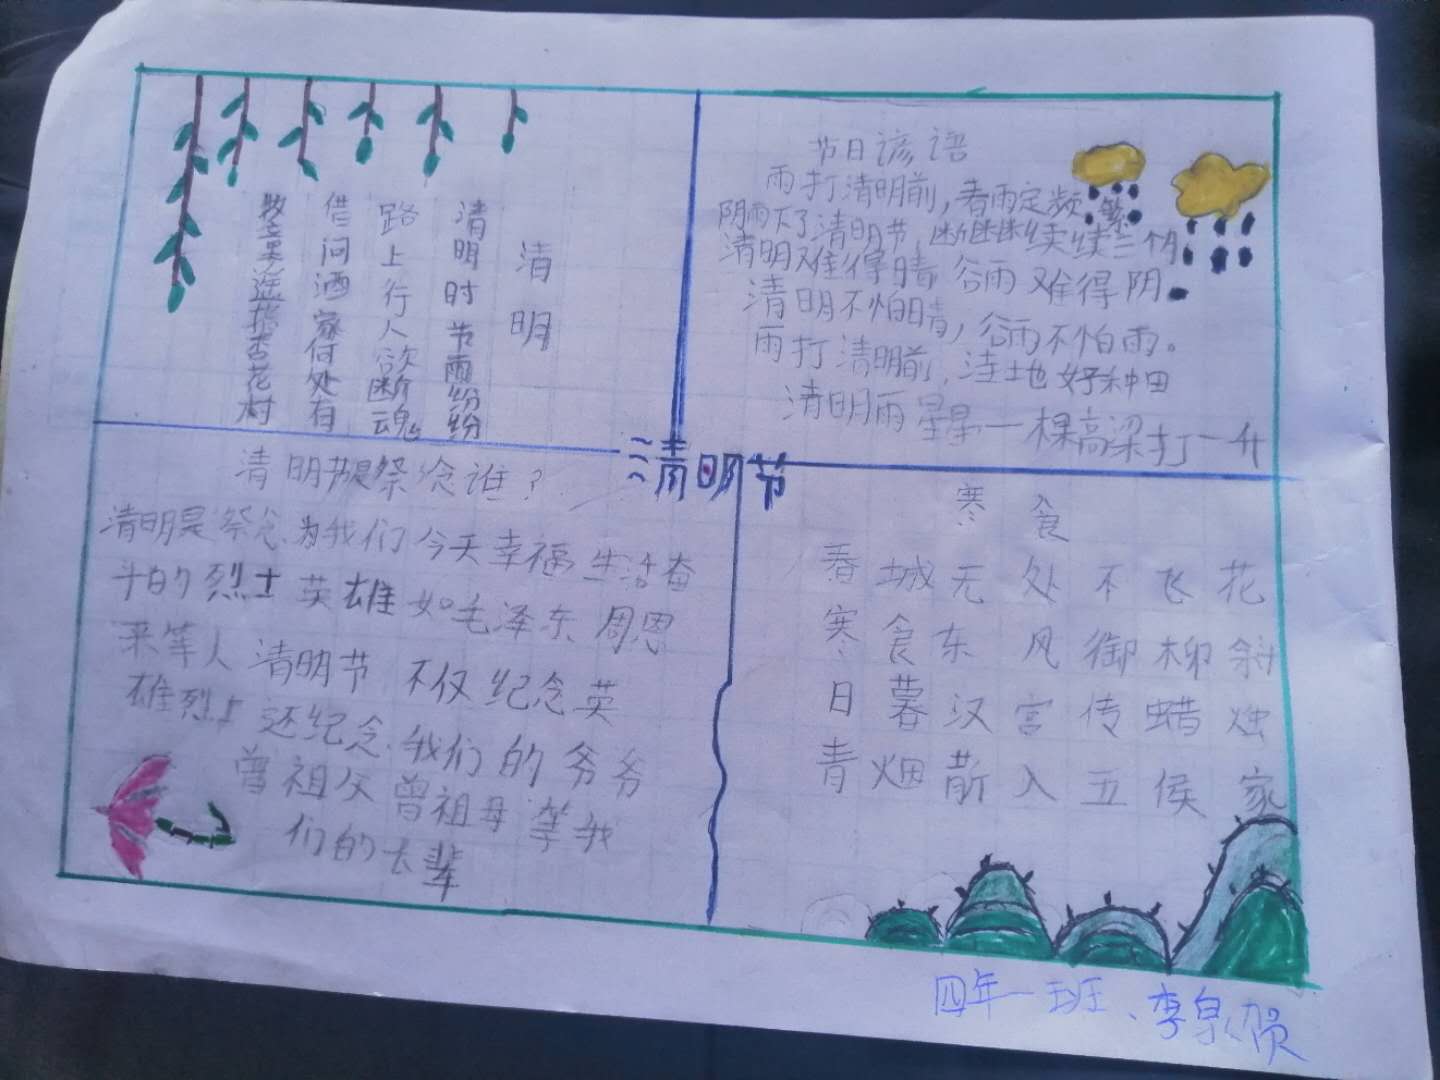 清明
清明时节雨纷纷
路上行人欲断魂
借问酒家何处有
牧童遥指杏花村
节日谚语
雨打清明前，春雨定频繁
阴雨下了清明节，断断续续三个月
清明难得晴，谷雨难得阴。
清明不怕晴，谷雨不怕雨。
雨打清明前，洼地好种田
清明雨星星一棵高梁打一升
清明节
清明节是祭念谁？
清明是祭念为我们今天幸福生活奋
斗的烈士英雄如毛泽东周恩
来等人清明节不仅纪念英
雄烈士还纪念我们的爷爷
曾祖父曾祖母等我
们的长辈
寒食
春城无处不飞花
寒食东风御柳斜
日暮汉宫传蜡烛
青烟散入五侯家
四年一班、李